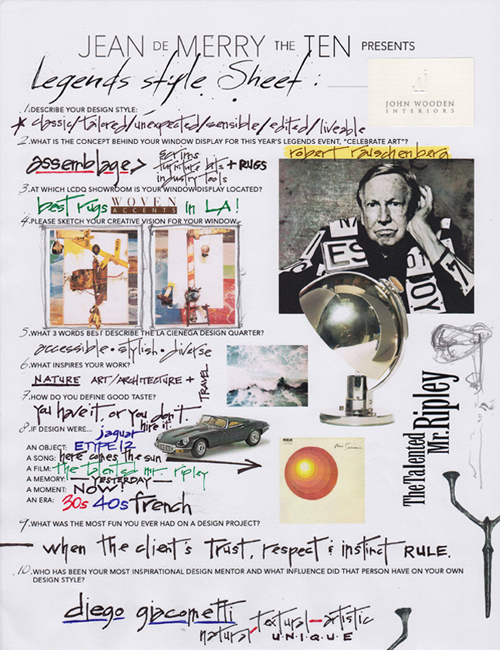 JEAN DE MERRY THE TEN PRESENTS
Legends style Sheet:
JOHN WOODEN
INTERIORS
1. DESCRIBE YOUR DESIGN STYLE:
* classic/tailored/unexpected/sensible/edited/liveable
2. WHAT IS THE CONCEPT BEHIND YOUR WINDOW DISPLAY FOR THIS YEAR'S LEGENDS EVENT, "CELEBRATE ART"?
robert rauschenberg
assemblage > scrims
furniture bits + RUGS
industry tools
3. AT WHICH LCDQ SHOWROOM IS YOUR WINDOW DISPLAY LOCATED?
best rugs WOVEN in LA!
ACCENTS
4. PLEASE SKETCH YOUR CREATIVE VISION FOR YOUR WINDOW
5. WHAT 3 WORDS BEST DESCRIBE THE LA CIENEGA DESIGN QUARTER?
accessible • stylish • diverse
6. WHAT INSPIRES YOUR WORK?
NATURE ART/ARCHITECTURE + TRAVEL
7. HOW DO YOU DEFINE GOOD TASTE?
You have it, or you don't
hire it!
8. IF DESIGN WERE...
jaguar
AN OBJECT: ETYPE 12
A SONG: here comes the sun
A FILM: the talented mr. ripley
A MEMORY: — YESTERDAY —
A MOMENT: NOW!
AN ERA: 30s 40s french
The Talented
Mr. Ripley
9. WHAT WAS THE MOST FUN YOU EVER HAD ON A DESIGN PROJECT?
— when the client's trust, respect & instinct RULE.
10. WHO HAS BEEN YOUR MOST INSPIRATIONAL DESIGN MENTOR AND WHAT INFLUENCE DID THAT PERSON HAVE ON YOUR OWN
DESIGN STYLE?
diego giacometti
natural - textural - artistic
U·N·I·Q·U·E